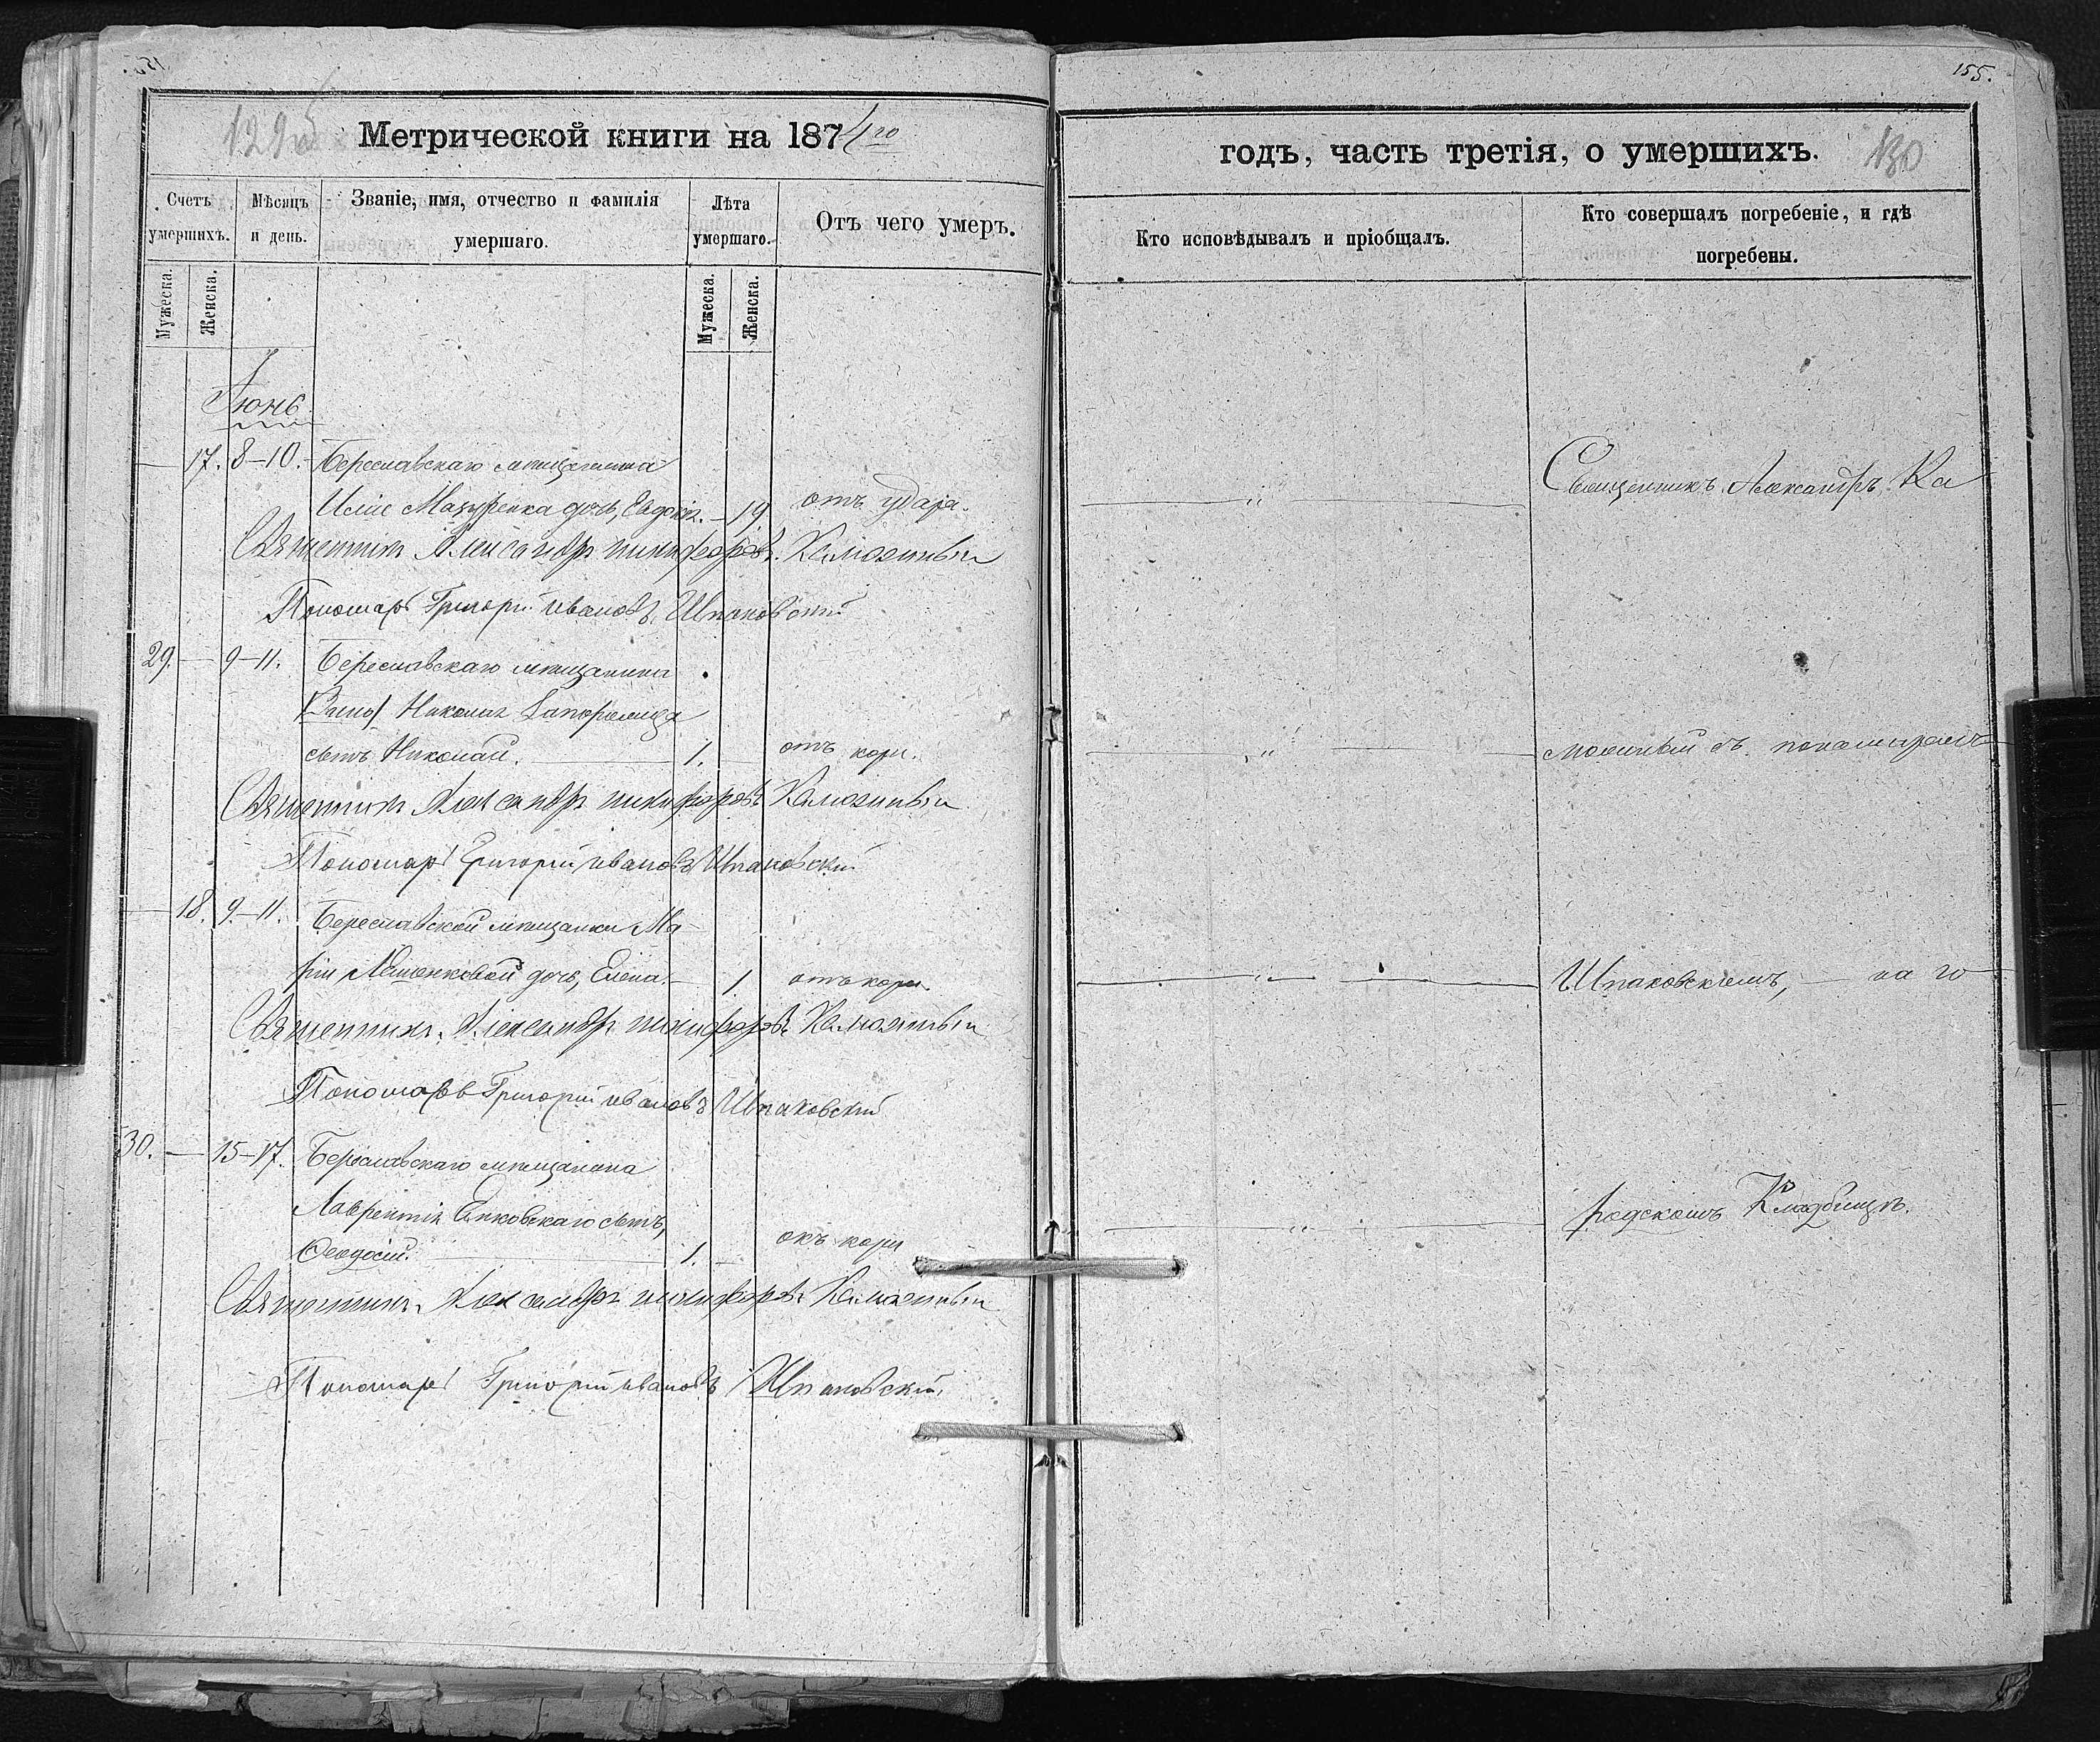 155.
129об
Метрической книги на 1874го
годъ, часть третія, о умершихъ.
130
Счетъ умершихъ.
Мѣсяцъ и день.
Званіе, имя, отчество и фамилія умершаго.
Лѣта умершаго.
Отъ чего умеръ.
Кто исповѣдывалъ и пріобщалъ.
Кто совершалъ погребеніе, и гдѣ погребены.
Мужеска.
Женска.
Мужеска.
Женска.
Іюнь.
— 17. 8–10. Береславскаго мѣщанина
Иліи Мазуренка дочь, Евдокія. — 19. отъ удара. — „ — Священникъ Александръ Ка
Священникъ Александръ Никифоровъ
Пономарь Григорій Ивановъ Шпаковскій
29. — 9–11. Береславскаго мѣщанина
Николая
сынъ Николай. — 1. — отъ кори. — „ — съ пономаремъ
Священникъ Александръ Никифоровъ
Пономарь Григорій Ивановъ Шпаковскій
— 18. 9–11. Береславской мѣщанки Ма-
ріи дочь, Елена. — 1. отъ кори. — „ — Шпаковскимъ, — на го
Священникъ Александръ Никифоровъ
Пономарь Григорій Ивановъ Шпаковскій
30. — 15–17. Береславскаго мѣщанина
Лаврентія сынъ,
Ѳеодосій. — 1. — отъ кори — „ — родскомъ Кладбищѣ.
Священникъ Александръ Никифоровъ
Пономарь Григорій Ивановъ Шпаковскій